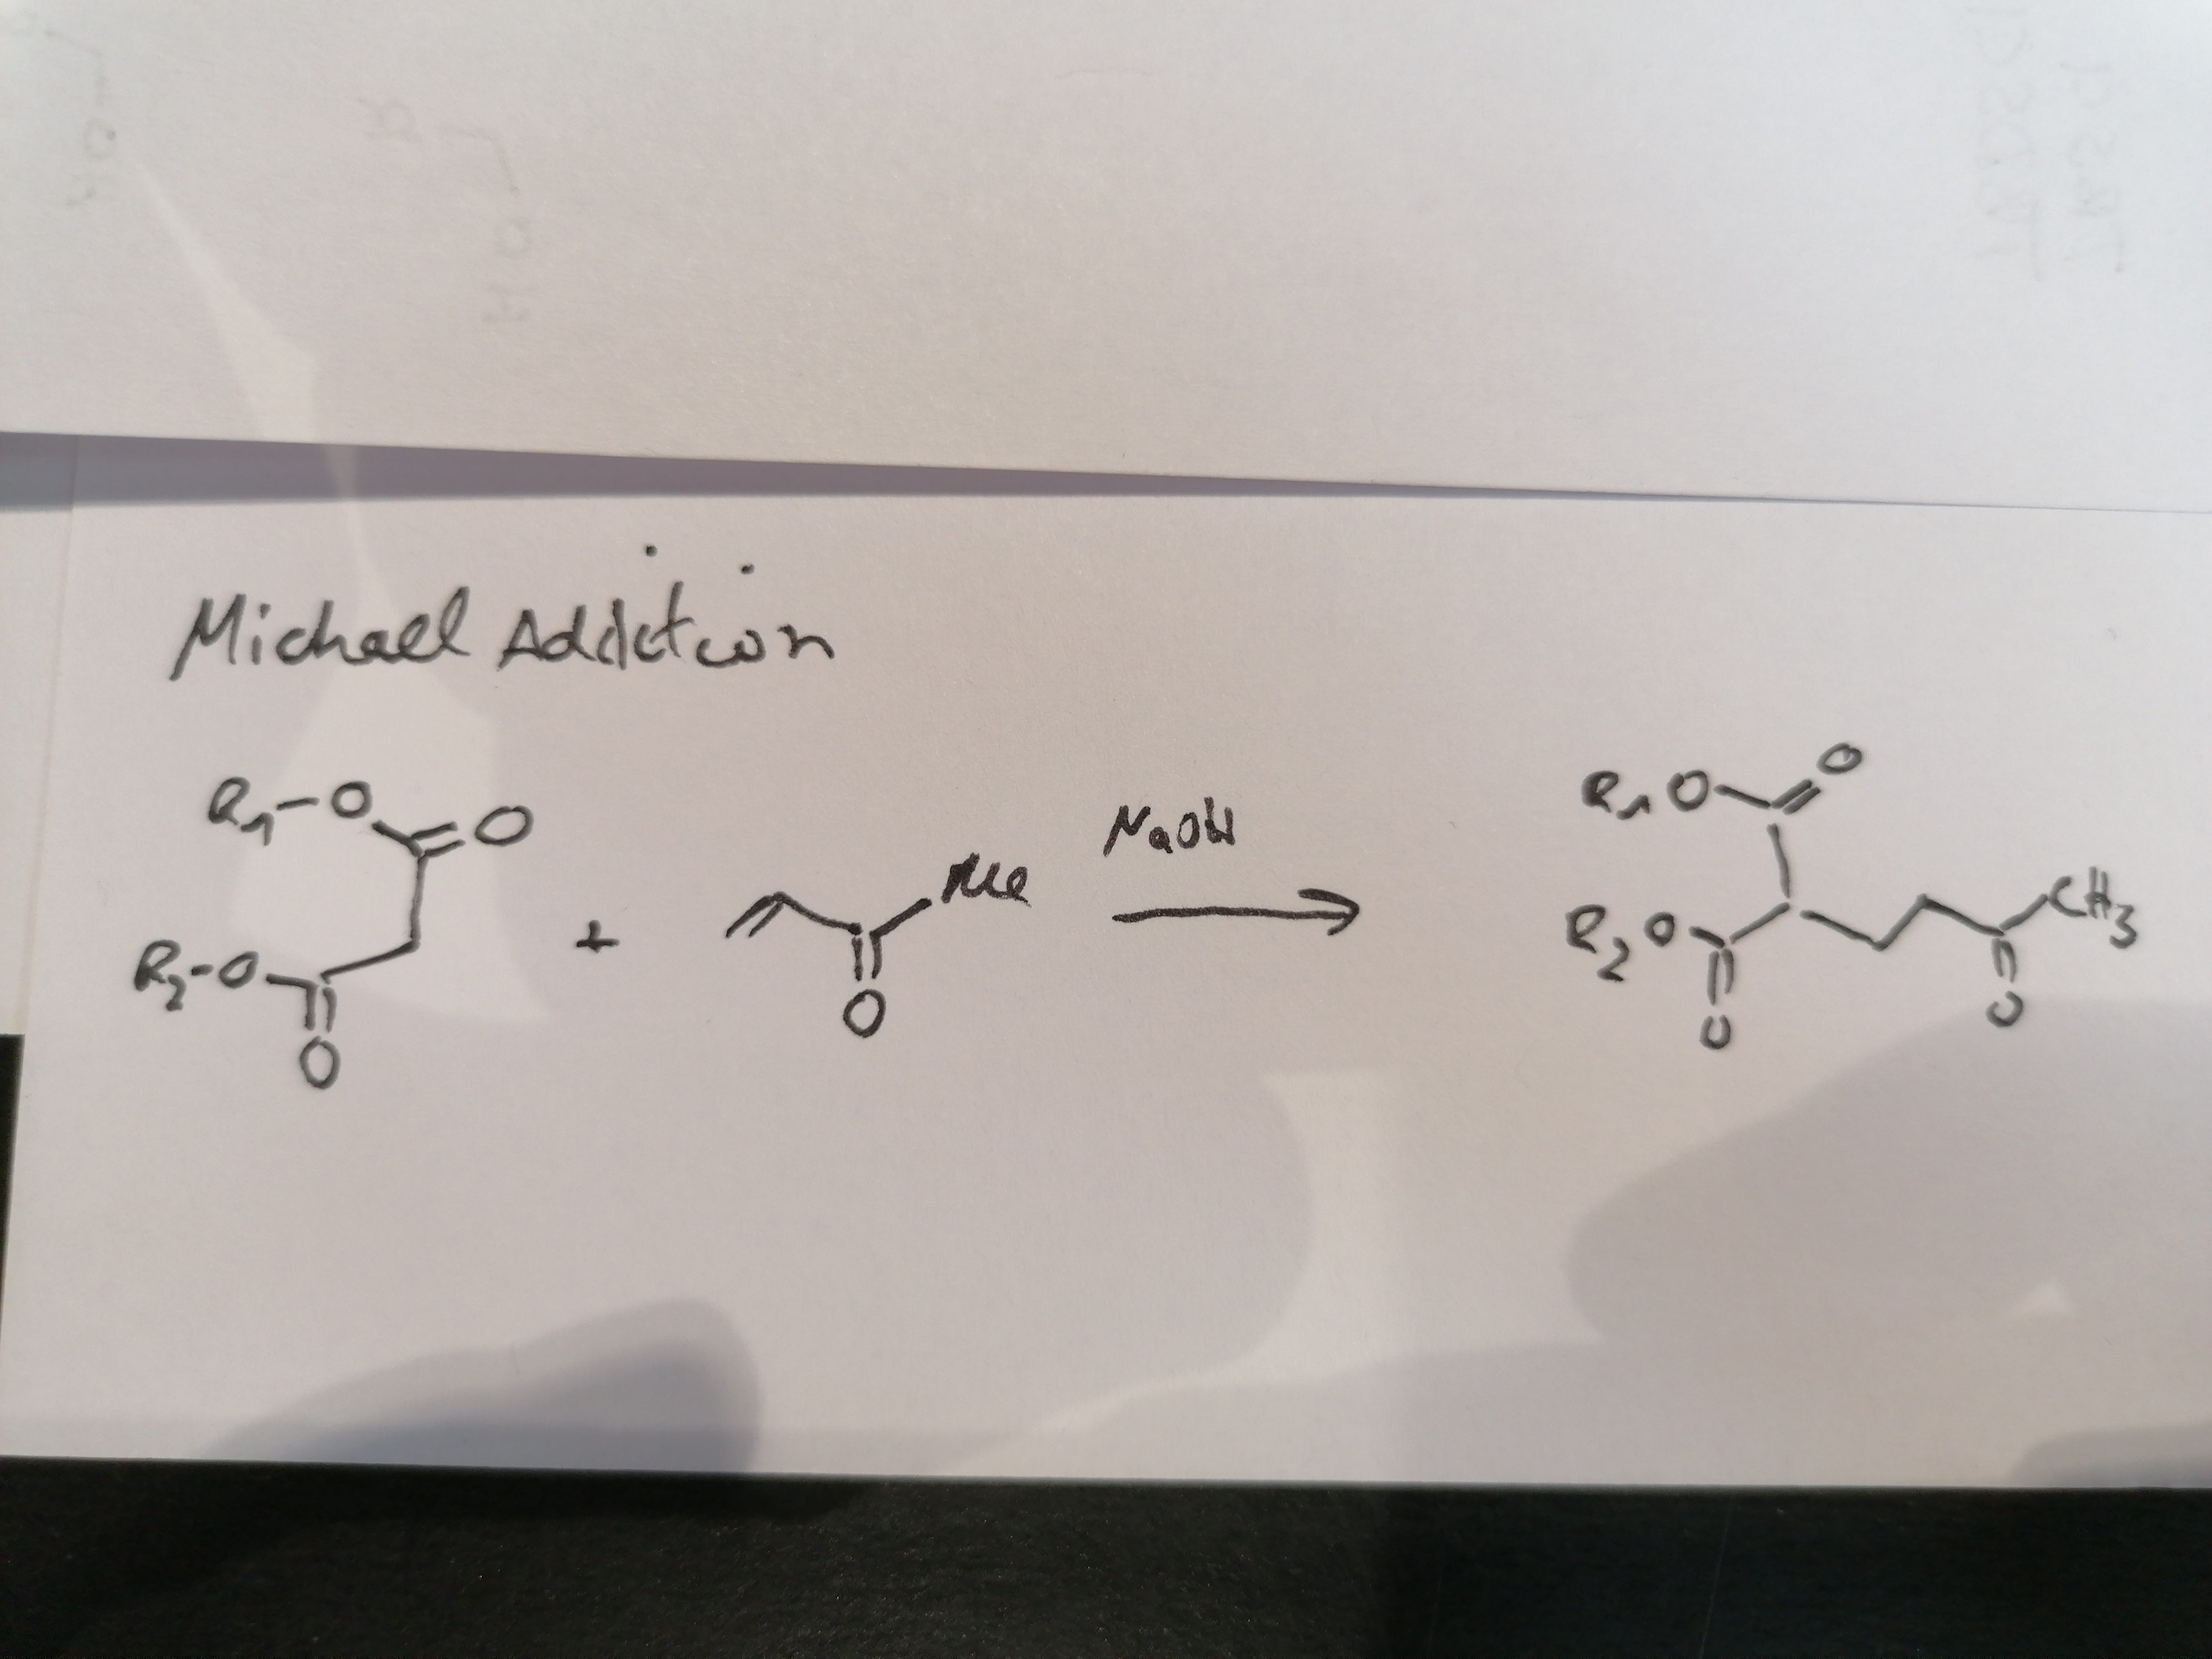 Michael Addition
R1-O O
R2-O O
+
O Me
NaOH
R1 O O
R2 O O
O CH3